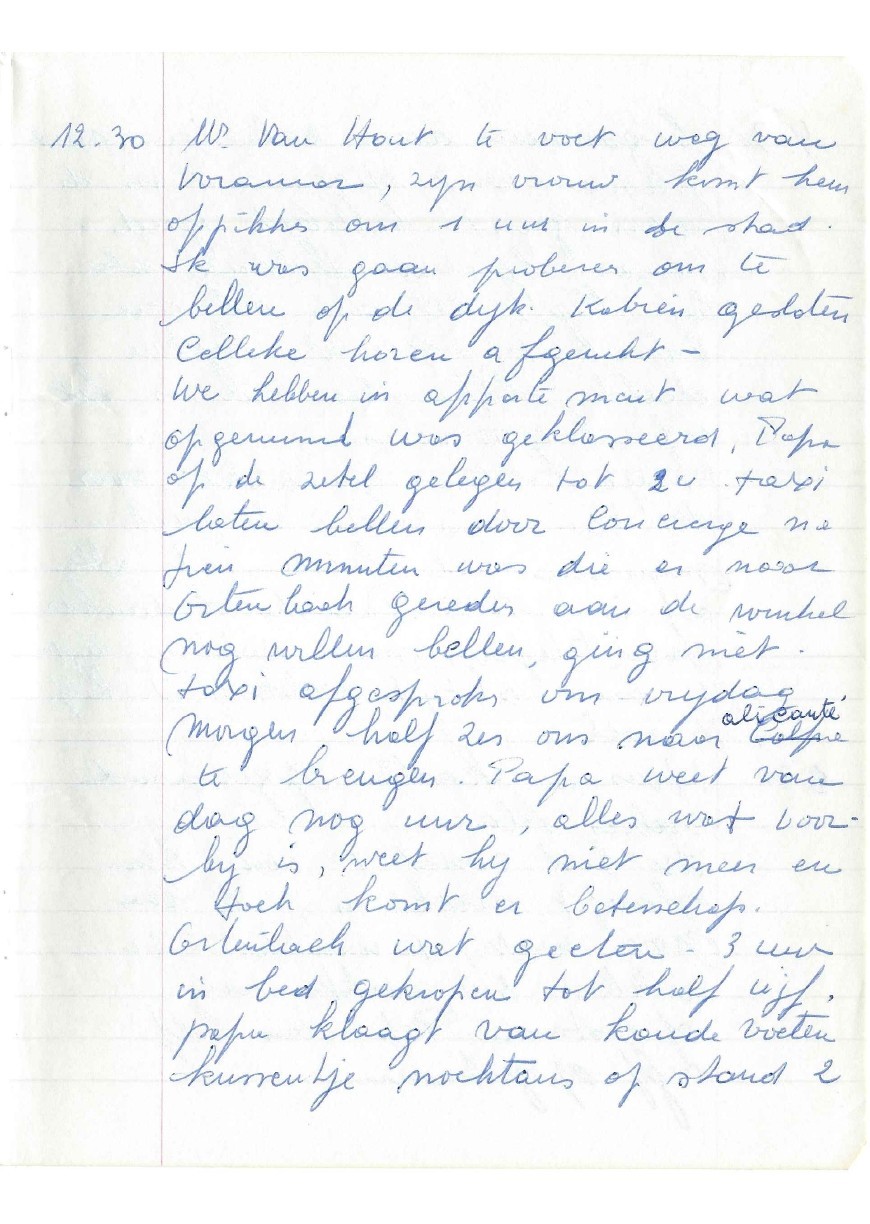 12.30 Mr Van Hout te voet weg van
Voramar, zyn vrouw komt hem
oppikken om 1 uur in de stad.
Ik was gaan proberen om te
bellen op de dyk. Kabien gesloten
Celleke horen afgerukt -
We hebben in appartement wat
opgeruimd was geklasseerd, Papa
op de zetel gelegen tot 2u taxi
laten bellen door Concierge na
tien minuten was die er naar
Ortenbach gereden aan de winkel
nog willen bellen, ging niet.
taxi afgesproken om vrydag
morgen half zes ons naar alicante
te brengen. Papa weet van
dag nog uur, alles wat voor-
by is, weet hy niet meer en
toch komt er beterschap.
Ortenbach wat gegeten - 3 uur
in bed gekropen tot half vijf.
papa klaagt van koude voeten
kussentje nochtans op stand 2